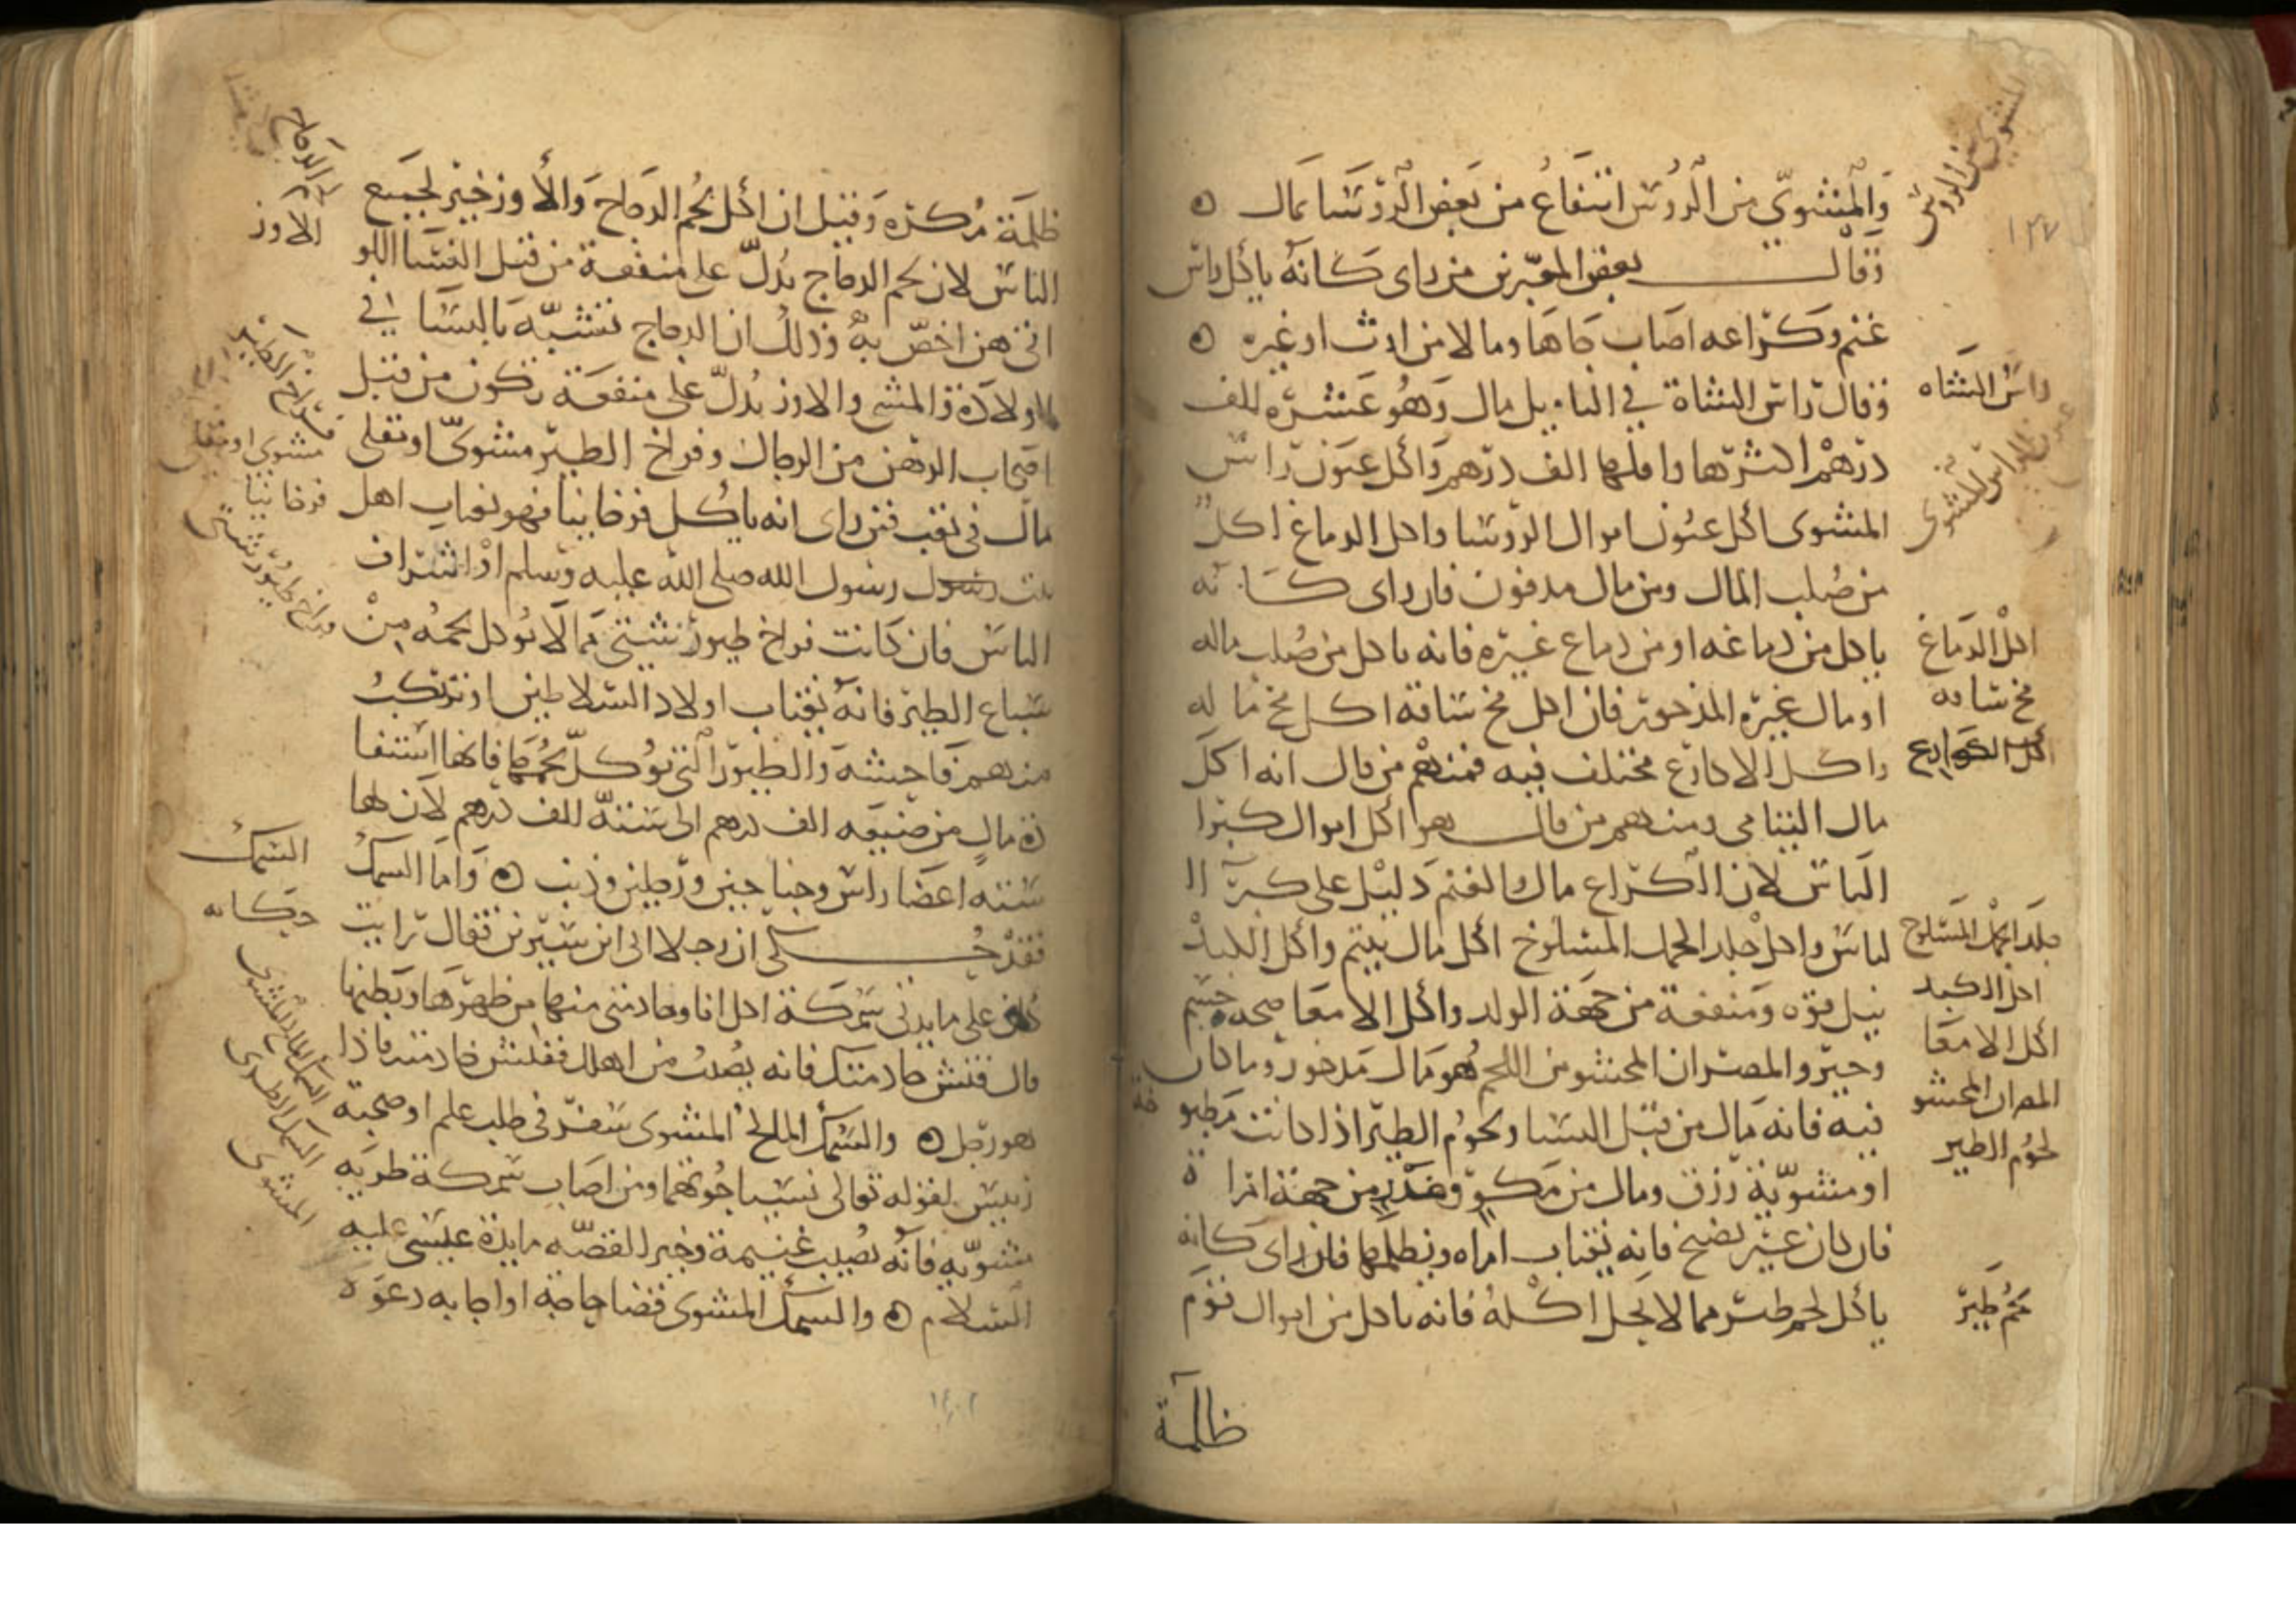 والمشوي من الروس انتفاع من بعض الروسا بمال
وقال بعض المعبرين من راى كانه ياكل راس
غنم وكراعه اصاب جاها ومالا من ارث او غيره
وقال راس الشاة في التاويل مال وهو عشرة الف
درهم اكثرها واقلها الف درهم واكل عيون راس
المشوى اكل عيون اموال الروسا واكل الدماغ اكل
من صلب المال ومن مال مدفون فان راى كانه
ياكل من دماغه او من دماغ غيره فانه ياكل من صلب ماله
او مال غيره المذخور فان اكل مخ ساقه اكل مخ ماله
واكل الاكارع مختلف فيه فمنهم من قال انه اكل
مال اليتامى ومنهم من قال هو اكل اموال كبرا
الناس لان الكراع مال الغنم دليل على كبرآ ا
لناس واكل جلد الحمل المسلوخ اكل مال يتيم واكل الكبد
نيل قوه ومنفعة من جهة الولد واكل الامعا صحه جسم
وخير والمصران المحشو من اللحم هو مال مدخور وما كان
فيه فانه مال من قبل النسا ولحوم الطير اذا كانت مطبوخة
او مشوية رزق ومال من مكر وغدر من جهة امراة
فان كان غير نضيج فانه يغتاب امراه ويظلمها فان راى كانه
ياكل لحم طير مما لا يحل اكله فانه ياكل من اموال قوم
ظالمة
المشوي من الروس
١٣٧
راس الشاه
عيون الراس المشوى
اكل الدماغ
مخ ساقه
اكل الكوارع
جلد الحمل المسلوخ
اكل الكبد
اكل الامعا
المصران المحشو
لحوم الطير
لحم طير
ظلمة مكره وقيل ان اكل لحم الدجاج والاوز خير لجميع
الناس لان لحم الدجاج يدل على منفعة من قبل النسا اللو
اتي هن اخص به وذلك ان الدجاج تشبه بالنسا في
الاولادة والمشي والاوز يدل على منفعة تكون من قبل
اصحاب الدهن من الرجال وفراخ الطير مشوى او تقلى
مال في تعب فمن راى انه ياكل فرخا نيا فهو يغتاب اهل
بيت رسول الله صلى الله عليه وسلم او اشراف
الناس فان كانت فراخ طيور شتى مما لا يوكل لحمه من
سباع الطير فانه يغتاب اولاد السلاطين او يرتكب
منهم فاحشة والطيور التي توكل لحمها فانها استفا
دة مال من ضيعه الف درهم الى ستة الف درهم لان لها
ستة اعضا راس وجناحين ورجلين وذنب واما السمك
فقد حكى ان رجلا اتى ابن سيرين فقال رايت
كان على مايدتى سمكة اكل انا وخادمتى منها من ظهرها وبطنها
قال فتش خادمتك فانه يصيب من اهلك ففتش خادمته فاذا
هو رجل والسمك المالح المشوى سفر في طلب علم او صحبة
رييس لقوله تعالى نسيا حوتهما ومن اصاب سمكة طريه
مشويه فانه يصيب غنيمة وخير لقصة مايدة عيسى عليه
السلام والسمك المشوى قضا حاجة او اجابه دعوه
الدجاج
الاوز
فراخ الطير
مشوى او تقلى
فرخا نيا
فراخ طيور شتى
السمك
وحكايه
السمك المالح المشوى
السمك الطرى
المشوى